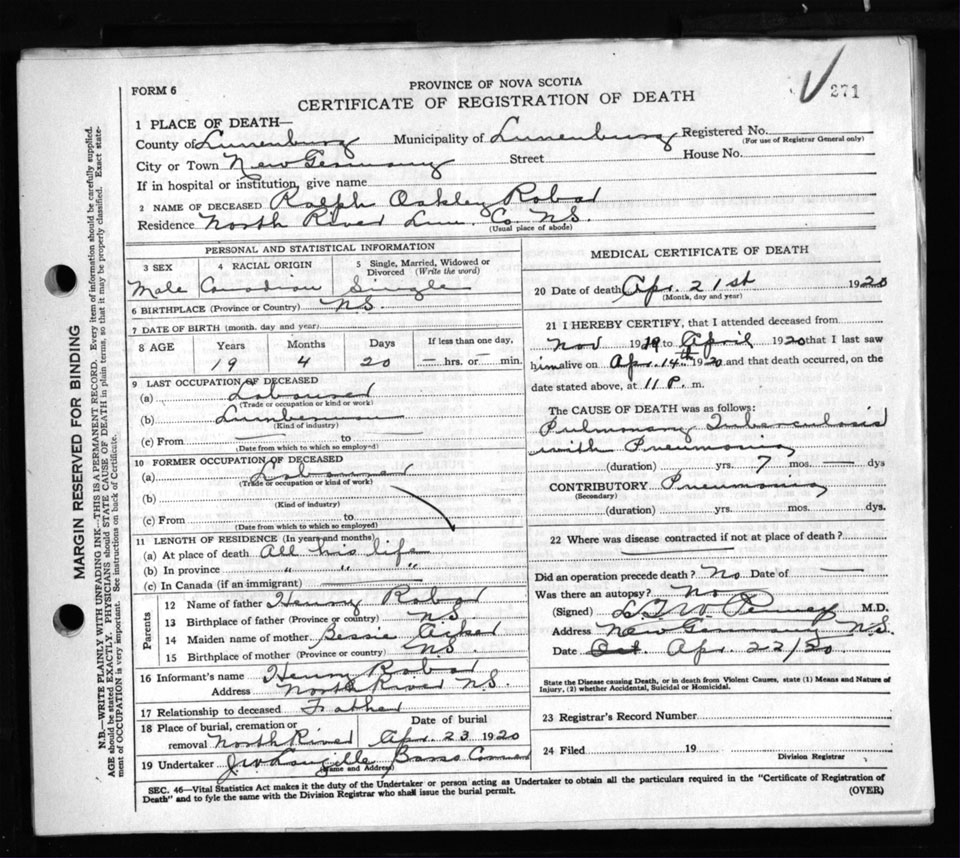 PROVINCE OF NOVA SCOTIA
FORM 6
CERTIFICATE OF REGISTRATION OF DEATH
271
1 PLACE OF DEATH—
County of Lunenburg Municipality of Lunenburg Registered No.
(For use of Registrar General only)
City or Town New Germany Street House No.
If in hospital or institution, give name
2 NAME OF DECEASED Ralph Oakley Robar
Residence North River Lun. Co. N.S.
(Usual place of abode)
PERSONAL AND STATISTICAL INFORMATION
3 SEX 4 RACIAL ORIGIN 5 Single, Married, Widowed or Divorced (Write the word)
Male Canadian Single
6 BIRTHPLACE (Province or Country) N.S.
7 DATE OF BIRTH (month, day and year)
8 AGE Years Months Days If less than one day,
19 4 20 — hrs. or — min.
9 LAST OCCUPATION OF DECEASED
(a) Labourer
(Trade or occupation or kind or work)
(b) Lumberman
(Kind of industry)
(c) From — to —
(Date from which to which so employed)
10 FORMER OCCUPATION OF DECEASED
(a) Labourer
(Trade or occupation or kind or work)
(b)
(Kind of industry)
(c) From to
(Date from which to which so employed)
11 LENGTH OF RESIDENCE (In years and months)
(a) At place of death All his life
(b) In province " " "
(c) In Canada (if an immigrant)
Parents
12 Name of father Henry Robar
13 Birthplace of father (Province or country) N.S.
14 Maiden name of mother Bessie
15 Birthplace of mother (Province or country) N.S.
16 Informant's name Henry Robar
Address North River N.S.
17 Relationship to deceased Father
18 Place of burial, cremation or removal North River
Date of burial Apr. 23 1920
19 Undertaker Barss Corner
(Name and Address)
MEDICAL CERTIFICATE OF DEATH
20 Date of death Apr. 21st 1920
(Month, day and year)
21 I HEREBY CERTIFY, that I attended deceased from
Nov 1919 to April 1920 that I last saw
him alive on Apr. 14th 1920 and that death occurred, on the
date stated above, at 11 P. m.
The CAUSE OF DEATH was as follows:
Pulmonary Tuberculosis
with Pneumonia
(duration) yrs. 7 mos. — dys
CONTRIBUTORY Pneumonia
(Secondary)
(duration) yrs. mos. dys.
22 Where was disease contracted if not at place of death?
Did an operation precede death? No Date of —
Was there an autopsy? No
(Signed) M.D.
Address New Germany N.S.
Date Oct. Apr. 22/20
State the Disease causing Death, or in death from Violent Causes, state (1) Means and Nature of
Injury, (2) whether Accidental, Suicidal or Homicidal.
23 Registrar's Record Number
24 Filed 19
Division Registrar
SEC. 46—Vital Statistics Act makes it the duty of the Undertaker or person acting as Undertaker to obtain all the particulars required in the "Certificate of Registration of
Death" and to fyle the same with the Division Registrar who shall issue the burial permit.
(OVER)
MARGIN RESERVED FOR BINDING
N.B.—WRITE PLAINLY WITH UNFADING INK—THIS IS A PERMANENT RECORD. Every item of information should be carefully supplied.
AGE should be stated EXACTLY. PHYSICIANS should STATE CAUSE OF DEATH in plain terms, so that it may be properly classified. Exact state-
ment of OCCUPATION is very important. See instructions on back of Certificate.